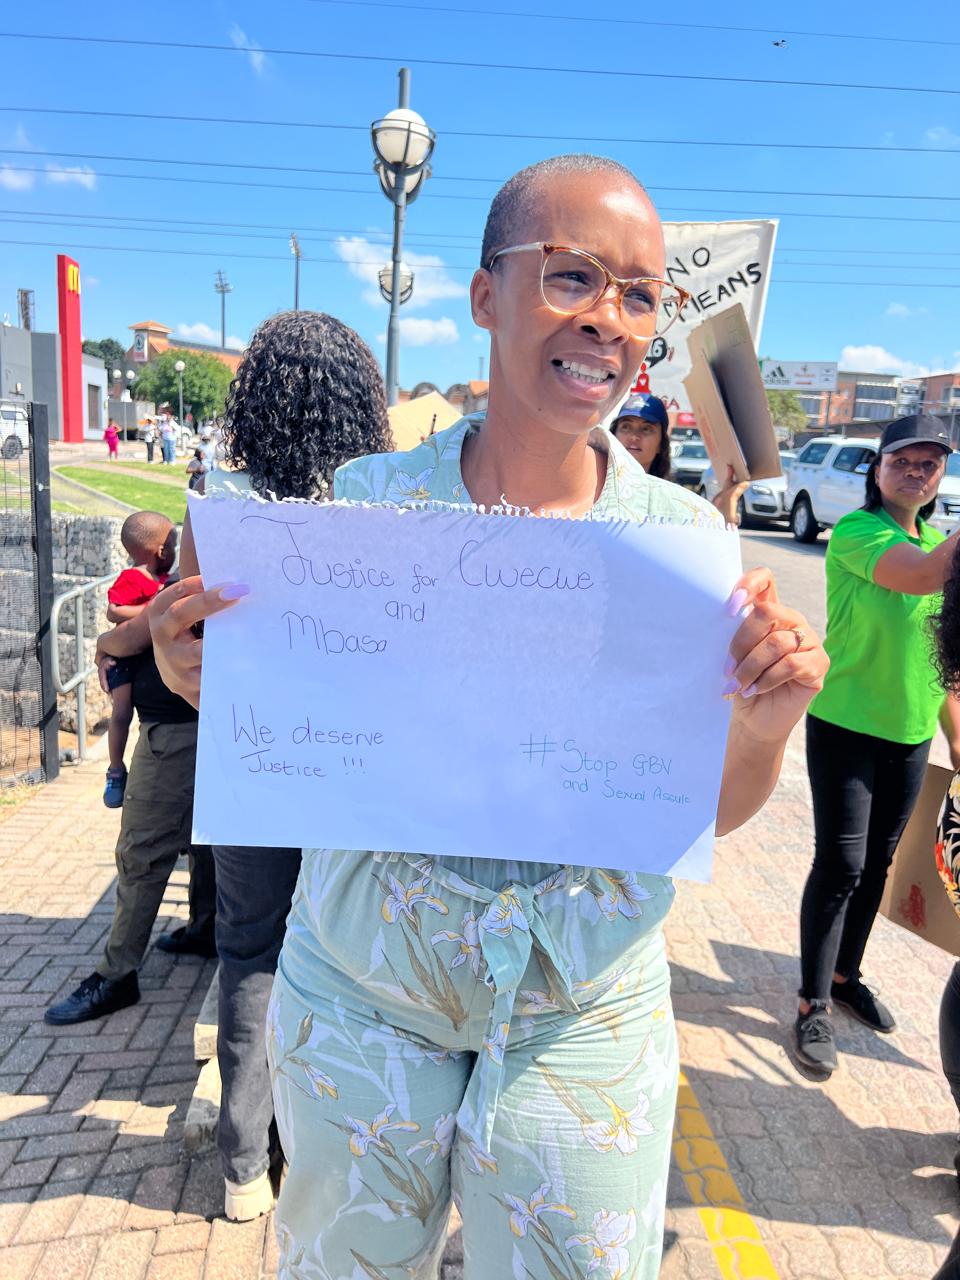 NO
MEANS
adidas
Justice for Cwecwe
and
Mbasa
We deserve
Justice !!!
#Stop GBV
and Sexual Assult